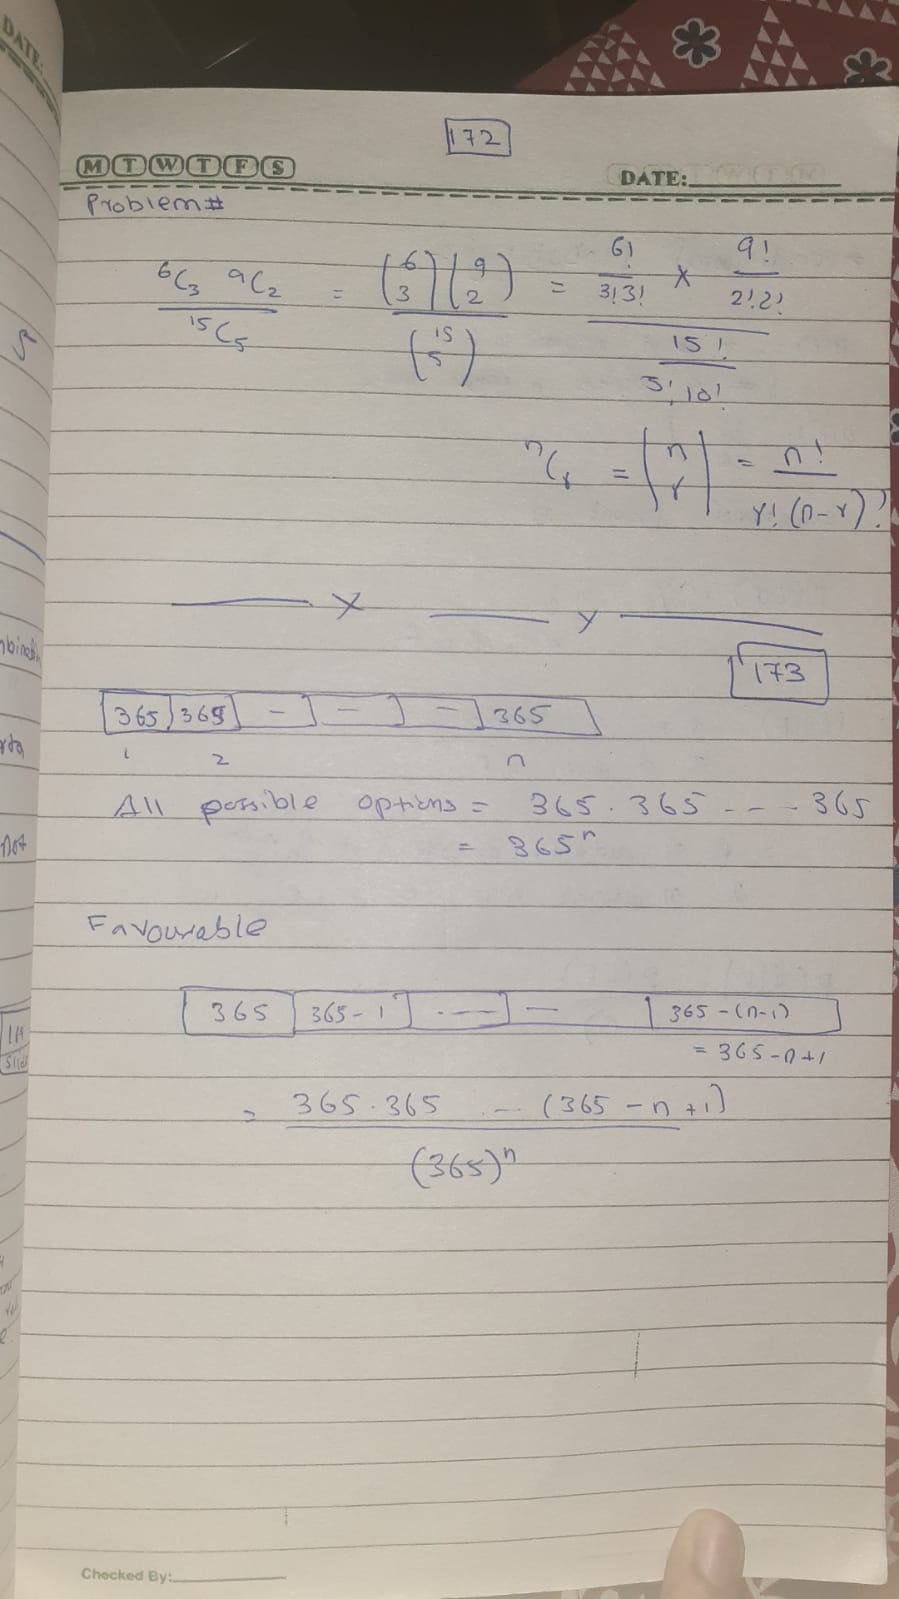 DATE:
172
M T W T F S
DATE:
Problem#
⁶C₃ ⁹C₂ / ¹⁵C₅ = (6 3)(9 2) / (15 5) = 6!/3!3! × 9!/2!2! / 15!/5!10!
ⁿCᵣ = (n r) = n!/r!(n-r)!
x y
173
365 365 - - - 365
1 2 n
All possible options = 365 . 365 --- 365
= 365ⁿ
Favourable
365 365-1 --- - 365-(n-1)
= 365-n+1
= 365.365 -- (365-n+1) / (365)ⁿ
Checked By: